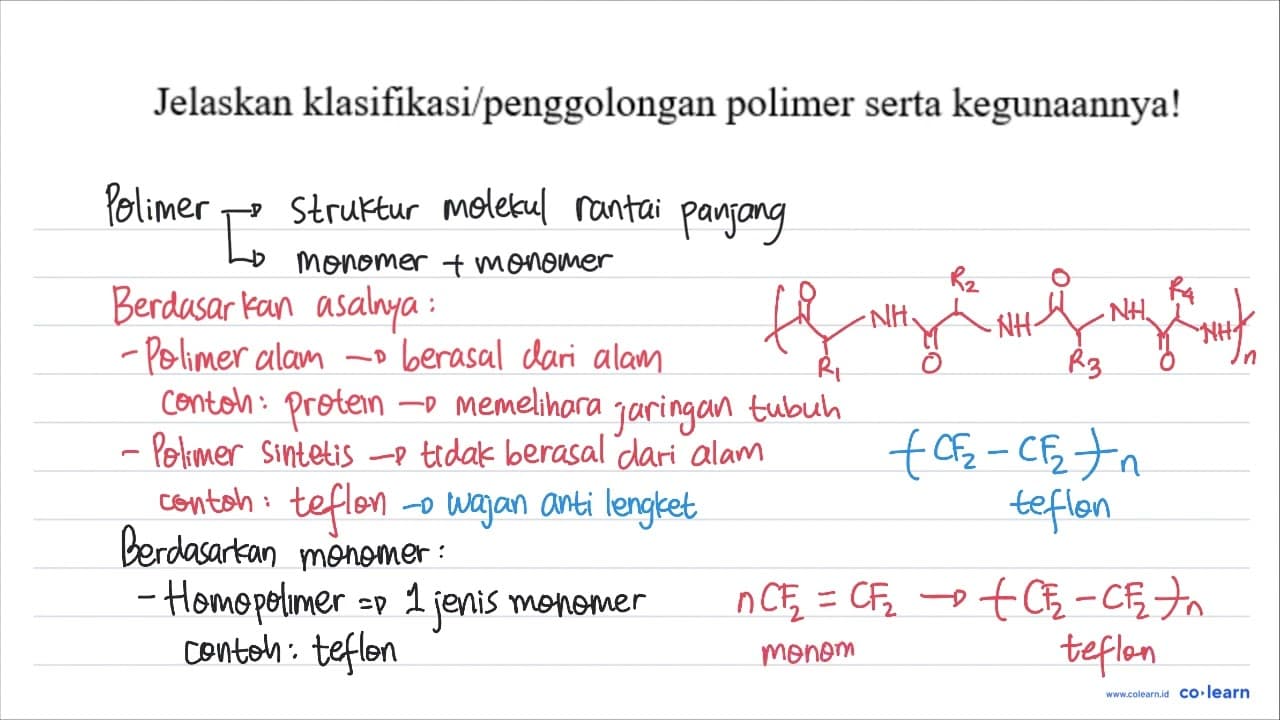 Jelaskan klasifikasi/penggolongan polimer serta kegunaannya!
Polimer → struktur molekul rantai panjang
→ monomer + monomer
Berdasarkan asalnya :
- Polimer alam → berasal dari alam
contoh : protein → memelihara jaringan tubuh
O R1 NH O R2 NH O R3 NH O R4 NH n
- Polimer sintetis → tidak berasal dari alam
contoh : teflon → wajan anti lengket
(CF2 - CF2)n
teflon
Berdasarkan monomer :
- Homopolimer => 1 jenis monomer
contoh : teflon
nCF2 = CF2 → (CF2 - CF2)n
monom teflon
www.colearn.id co·learn